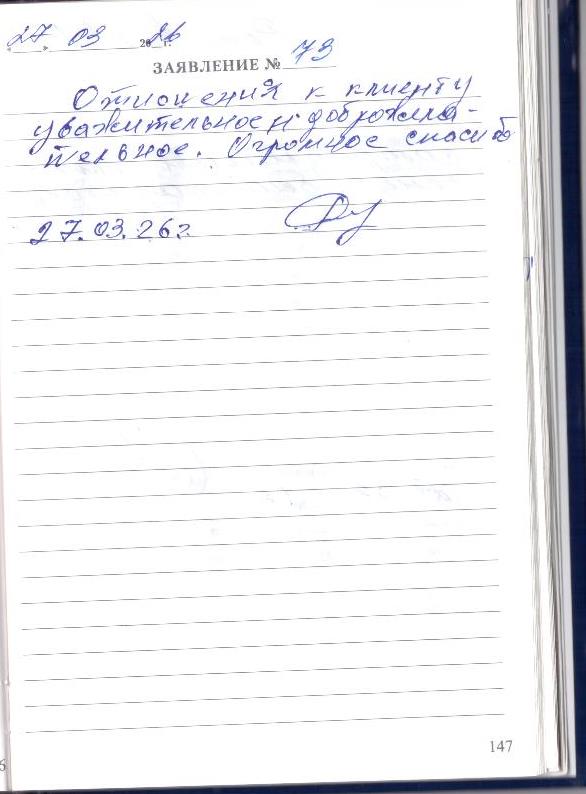 "27" 03 2026 г.
ЗАЯВЛЕНИЕ № 73
Отношения к клиенту
уважительное и доброжела-
тельное. Огромное спасибо
27.03.26г.
147
6